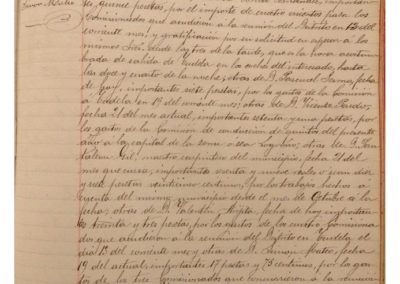 quince pesetas, por el importe de cuatro asientos para los
comisionados que acudieron á la reunión del Distrito en 13 del
corriente mes, y gratificación por su solicitud en esperar a los
mismos desde las tres de la tarde, que es la hora acostum-
brada de salida de Tudela en la coche del interesado, hasta
las doce y cuarto de la noche; otras de D. Pascual fecha
de hoy, importantes siete pesetas, por los gastos de la Comisión
a Tudela en 19 del corriente mes; otras de D. Vicente
fecha 21 del mes actual, importantes setenta y una pesetas, por
los gastos de la Comisión de conducción de quintos del presente
año á la capital de la zona o sea Logroño; otras de D.
Gil, maestro carpintero del municipio, fecha 21 del
mes que cursa, importantes setenta y nueve reales o sean diez
y nueve pesetas veinticinco centimos, por los trabajos hechos a
cuenta del mismo municipio desde el mes de Octubre a la
fecha; otras de D. Valentín fecha de hoy importan-
tes treinta y tres pesetas, por los gastos de los cuatro Comisiona-
dos que acudieron a la reunión del Distrito en Tudela el
día 13 del corriente mes y otras de D. Ramón Mateo, fecha
19 del actual, importantes 17 pesetas y 75 centimos, por los gas-
tos de los tres comisionados que concurrieron a la reunión